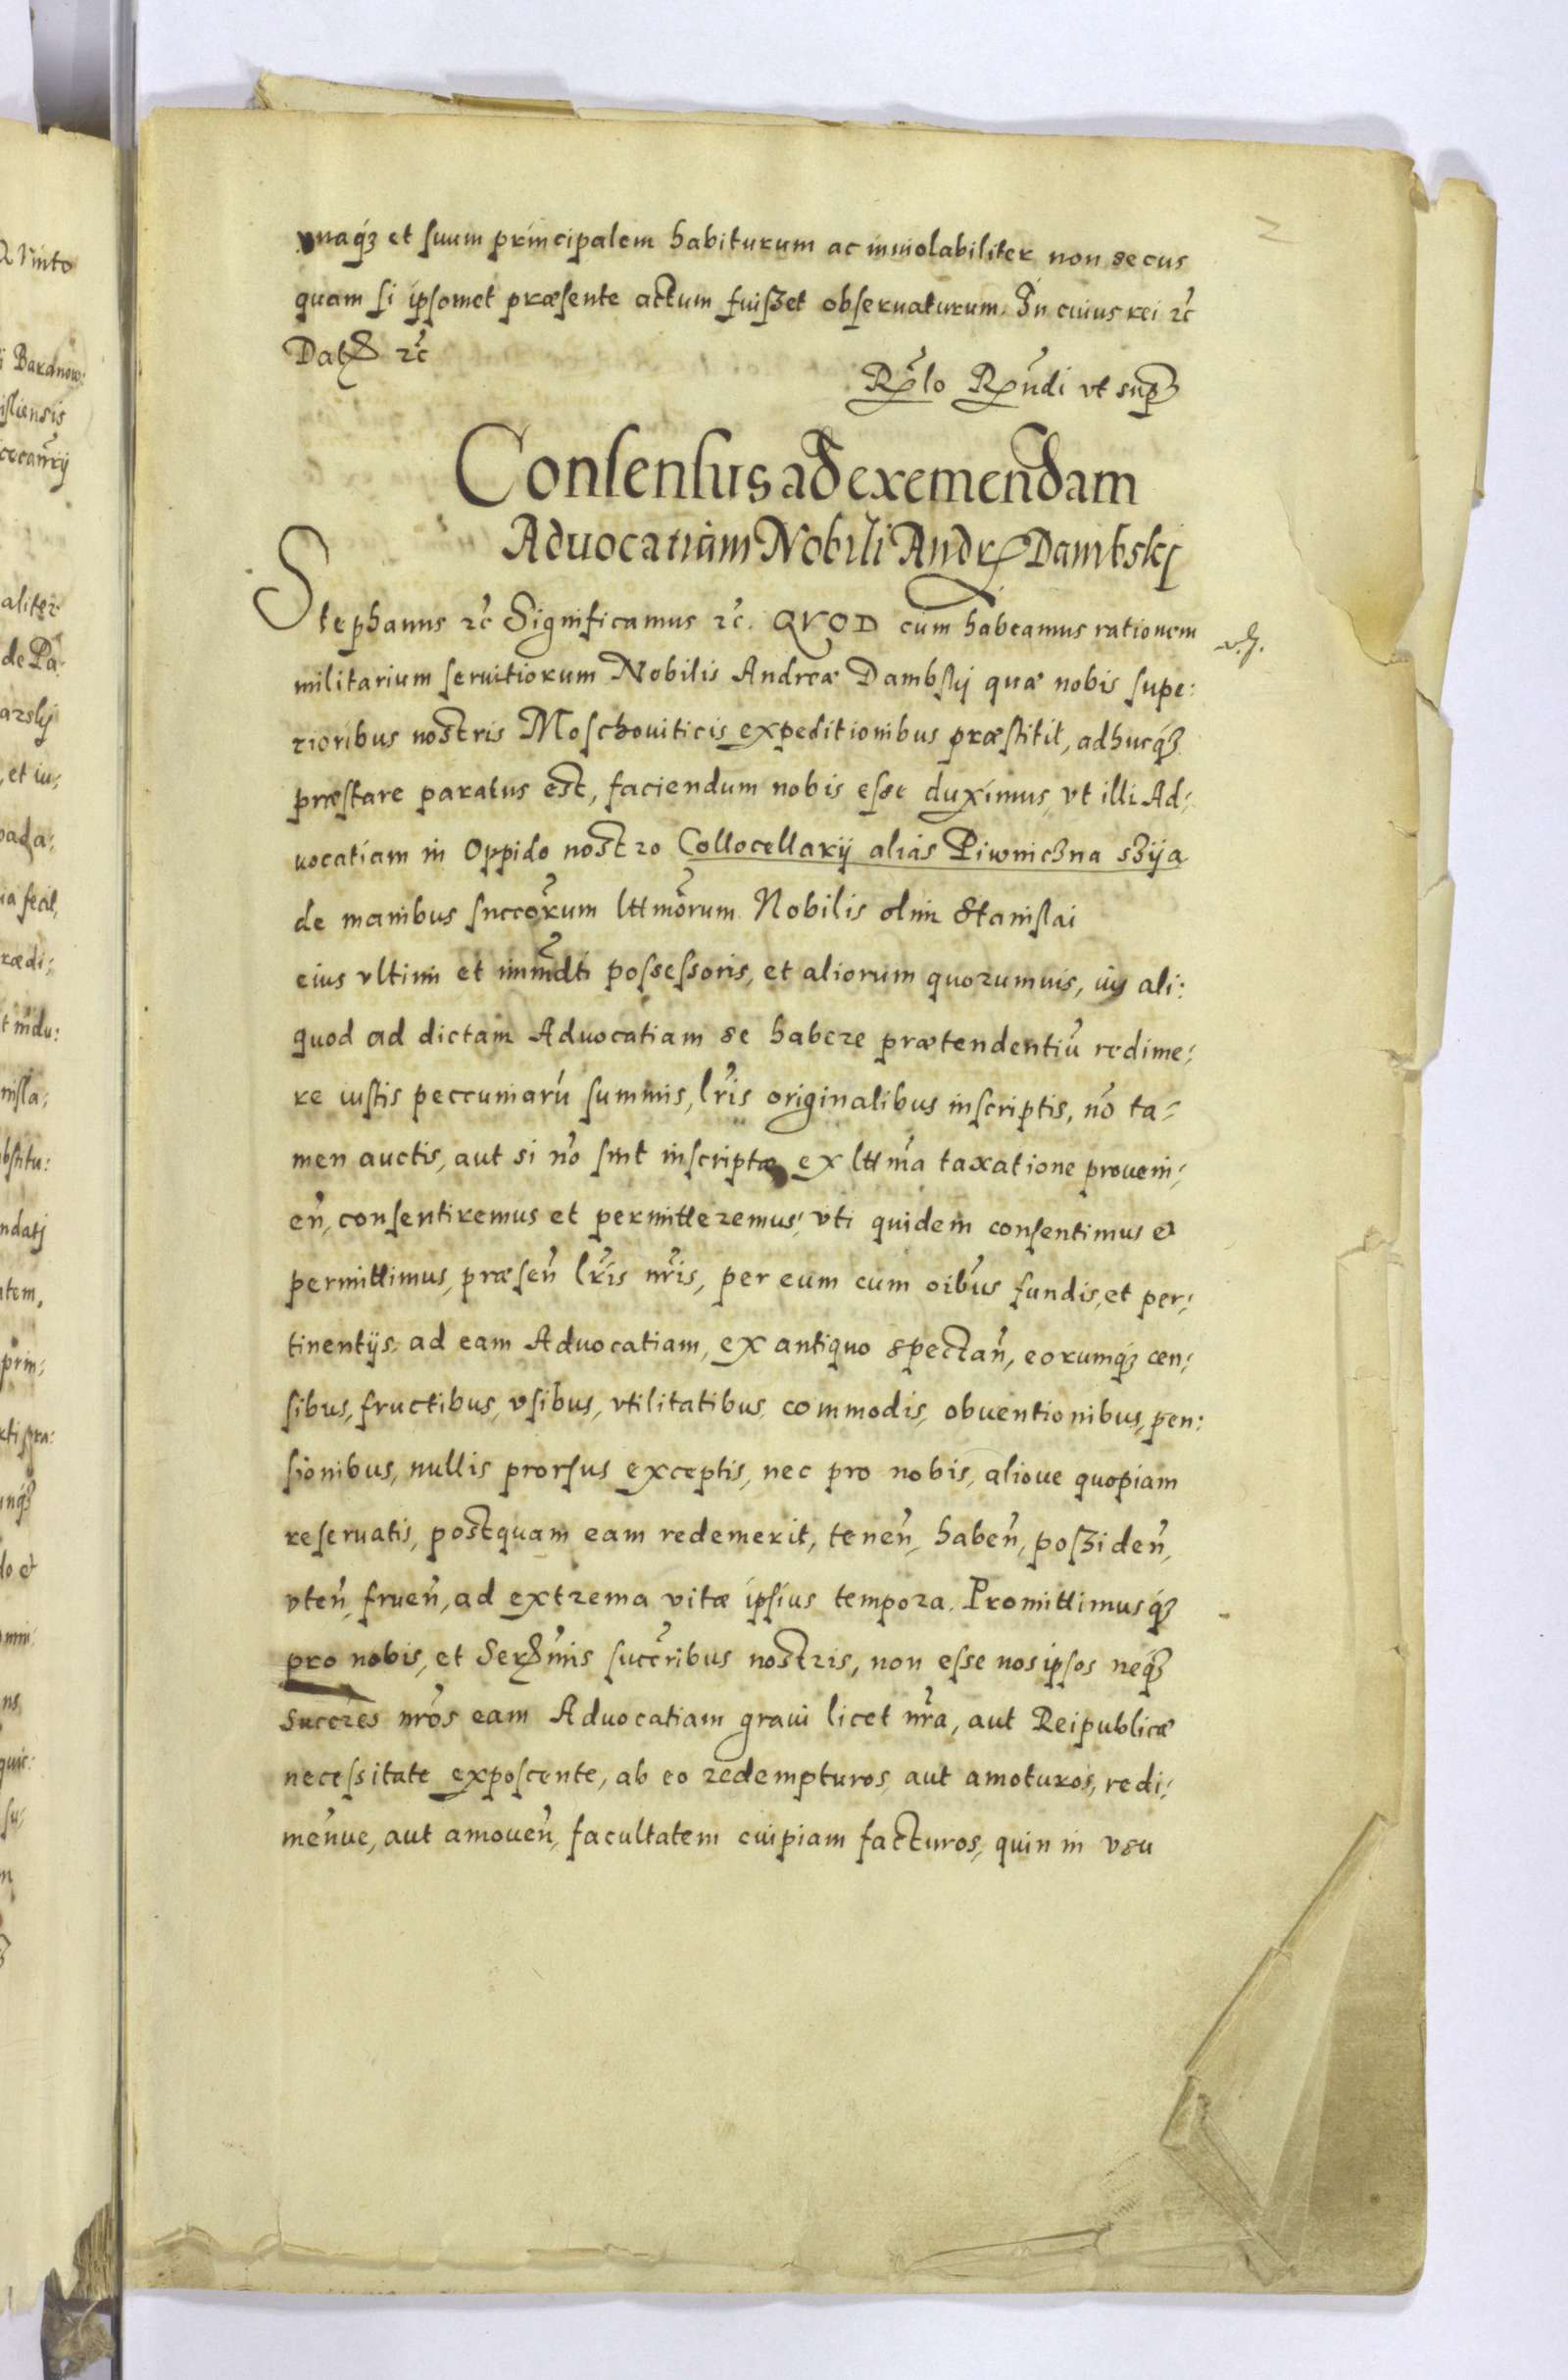 2
vnaqʒ et suum principalem habiturum ac inuiolabiliter non secus
quam si ipsomet præsente actum fuisset obseruaturum. In cuius rei ꝛc̃
Dat ꝛc̃
Rlo Rundi vt sup
Consensus ad exemendam
Aduocatiam Nobili Andr Dambskj
Stephanus ꝛc̃ Significamus ꝛc̃. QVOD cum habeamus rationem
militarium seruitiorum Nobilis Andreæ Dambskij quæ nobis supe:
rioribus nostris Moschouiticis expeditionibus præstitit, adhucqʒ
præstare paratus est, faciendum nobis esse duximus, vt illi Ad:
uocatiam in Oppido nostro Collocellarij aliàs Piwniczna szija
de manibus succõrum lttmõrum Nobilis olim Stanislai
eius vltimi et immdti possessoris, et aliorum quorumuis, ius ali:
quod ad dictam Aduocatiam se habere prætendentiũ redime:
re iustis peccuniarũ summis, lr̃is originalibus inscriptis, nõ ta:
men auctis, aut si nõ sint inscriptæ ex lttm̃a taxatione proueni:
eñ, consentiremus et permitteremus, vti quidem consentimus et
permittimus, præseñ lr̃is nr̃is, per eum cum oĩbus fundis, et per:
tinentijs, ad eam Aduocatiam, ex antiquo spectañ, eorumqʒ cen:
sibus, fructibus, vsibus, vtilitatibus, commodis, obuentionibus, pen:
sionibus, nullis prorsus exceptis, nec pro nobis, alioue quopiam
reseruatis, postquam eam redemerit, teneñ, habeñ, possideñ,
vteñ, frueñ, ad extrema vitæ ipsius tempora. Promittimusqʒ
pro nobis, et Serm̃is succr̃ibus nostris, non esse nos ipsos neqʒ
Succr̃es nr̃os eam Aduocatiam graui licet nr̃a, aut Reipublicæ
necessitate exposcente, ab eo redempturos, aut amoturos, redi:
meñue, aut amoueñ, facultatem cuipiam facturos, quin in vsu